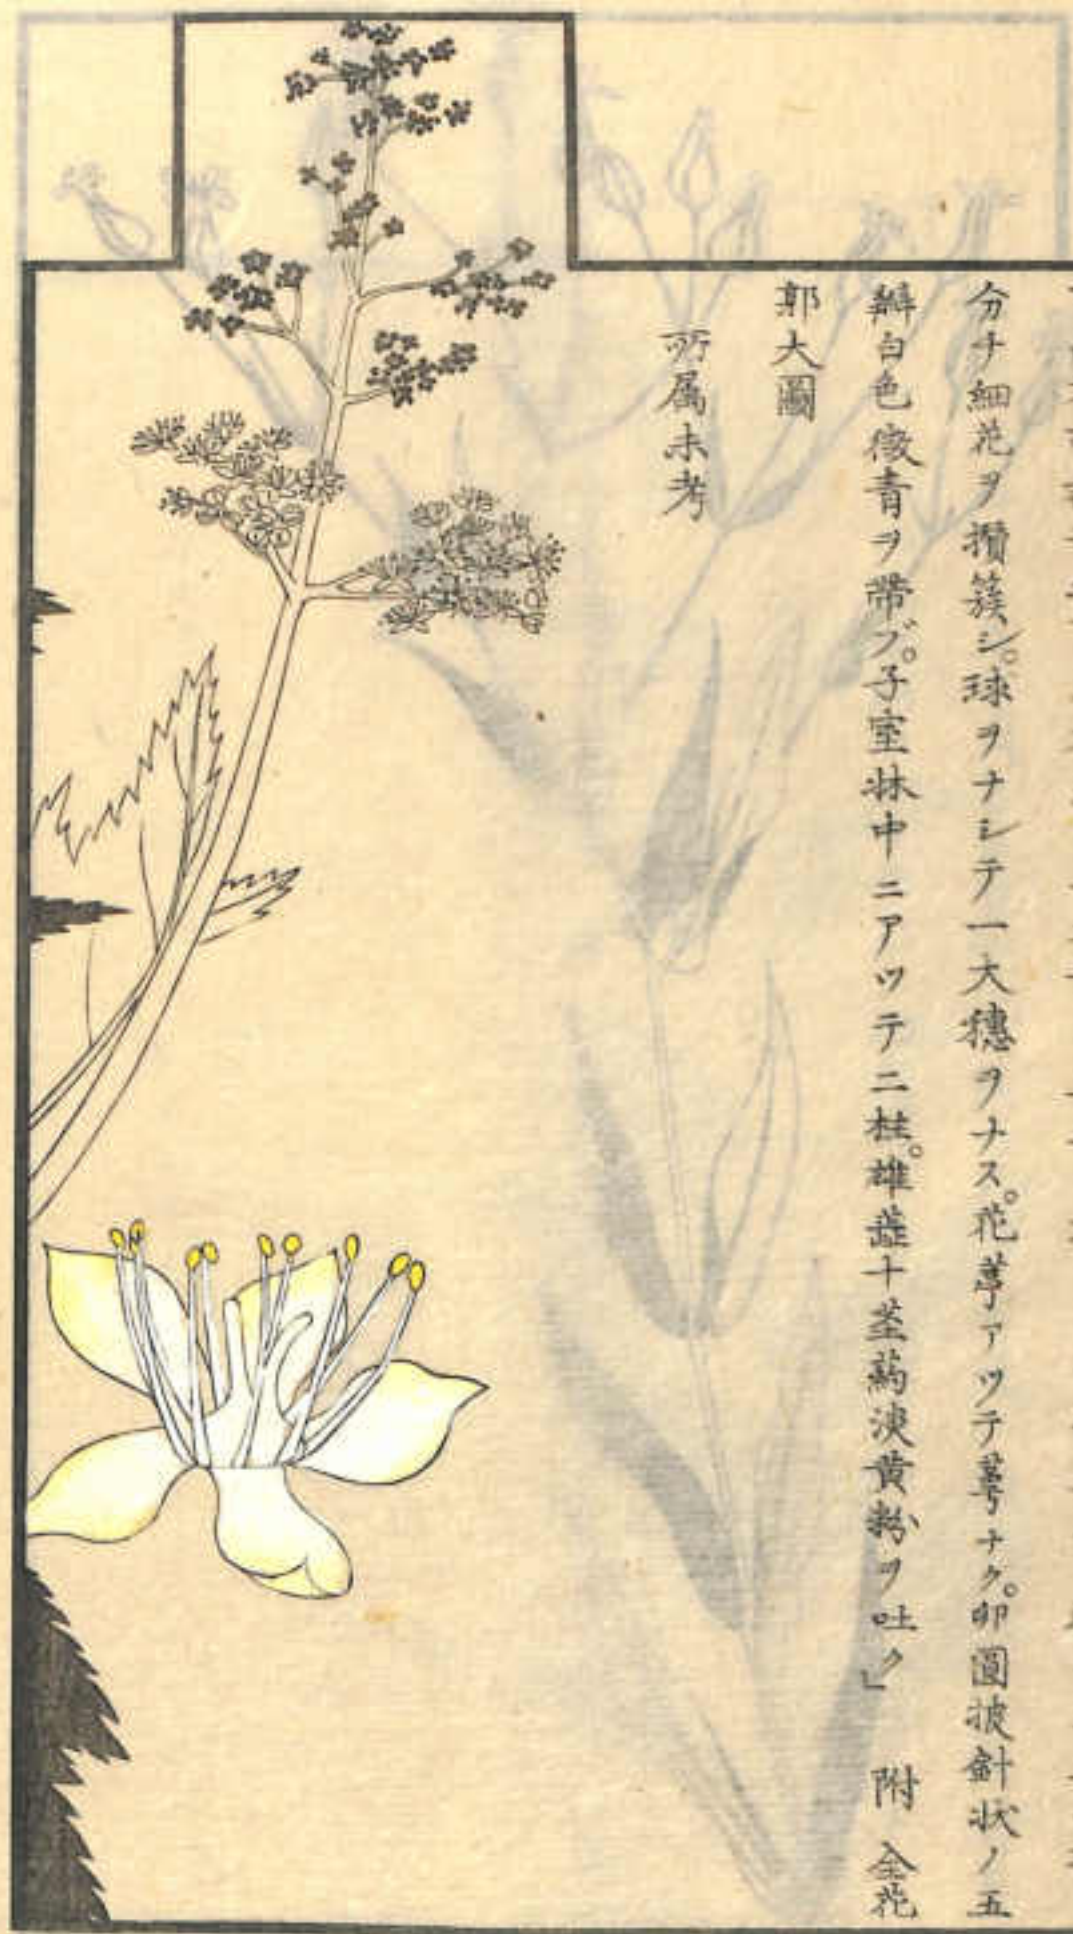 分ナ細花ヲ攢簇シ。球ヲナシテ一大穗ヲナス。花蕚アツテ萼ナク。卵圓披針狀ノ五
瓣白色微青ヲ帶ブ。子室牀中ニアツテ二柱。雄蕋十莖葯淡黄粉ヲ吐ク」 附 全花
郭大圖
所属未考